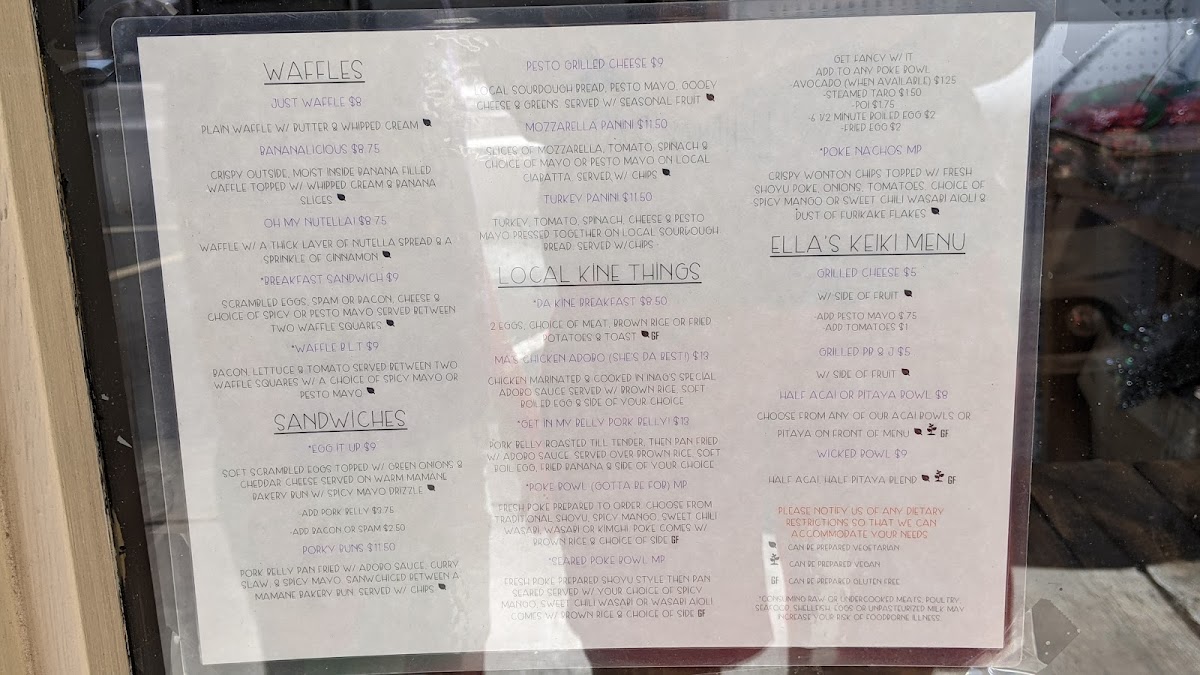 WAFFLES
JUST WAFFLE $8
PLAIN WAFFLE W/ BUTTER & WHIPPED CREAM
BANANALICIOUS $8.75
CRISPY OUTSIDE, MOIST INSIDE BANANA FILLED
WAFFLE TOPPED W/ WHIPPED CREAM & BANANA
SLICES
OH MY NUTELLA! $8.75
WAFFLE W/ A THICK LAYER OF NUTELLA SPREAD & A
SPRINKLE OF CINNAMON
*BREAKFAST SANDWICH $9
SCRAMBLED EGGS, SPAM OR BACON, CHEESE &
CHOICE OF SPICY OR PESTO MAYO SERVED BETWEEN
TWO WAFFLE SQUARES
*WAFFLE B.L.T $9
BACON, LETTUCE & TOMATO SERVED BETWEEN TWO
WAFFLE SQUARES W/ A CHOICE OF SPICY MAYO OR
PESTO MAYO
SANDWICHES
*EGG IT UP $9
SOFT SCRAMBLED EGGS TOPPED W/ GREEN ONIONS &
CHEDDAR CHEESE SERVED ON WARM MAMANE
BAKERY BUN W/ SPICY MAYO DRIZZLE
-ADD PORK BELLY $3.75
-ADD BACON OR SPAM $2.50
PORKY BUNS $11.50
PORK BELLY PAN FRIED W/ ADOBO SAUCE, CURRY
SLAW, & SPICY MAYO. SANWCHICED BETWEEN A
MAMANE BAKERY BUN. SERVED W/ CHIPS
PESTO GRILLED CHEESE $9
LOCAL SOURDOUGH BREAD, PESTO MAYO, GOOEY
CHEESE & GREENS. SERVED W/ SEASONAL FRUIT
MOZZARELLA PANINI $11.50
SLICES OF MOZZARELLA, TOMATO, SPINACH &
CHOICE OF MAYO OR PESTO MAYO ON LOCAL
CIABATTA, SERVED W/ CHIPS
TURKEY PANINI $11.50
TURKEY, TOMATO, SPINACH, CHEESE & PESTO
MAYO PRESSED TOGETHER ON LOCAL SOURDOUGH
BREAD, SERVED W/CHIPS
LOCAL KINE THINGS
*DA KINE BREAKFAST $8.50
2 EGGS, CHOICE OF MEAT, BROWN RICE OR FRIED
POTATOES & TOAST GF
MA'S CHICKEN ADOBO (SHE'S DA BEST!) $13
CHICKEN MARINATED & COOKED IN INAG'S SPECIAL
ADOBO SAUCE SERVED W/ BROWN RICE, SOFT
BOILED EGG & SIDE OF YOUR CHOICE
*GET IN MY BELLY PORK BELLY! $13
PORK BELLY ROASTED TILL TENDER, THEN PAN FRIED
W/ ADOBO SAUCE. SERVED OVER BROWN RICE, SOFT
BOIL EGG, FRIED BANANA & SIDE OF YOUR CHOICE
*POKE BOWL (GOTTA BE FOB) MP
FRESH POKE PREPARED TO ORDER. CHOOSE FROM
TRADITIONAL SHOYU, SPICY MANGO, SWEET CHILI
WASABI, WASABI OR KIMCHI POKE COMES W/
BROWN RICE & CHOICE OF SIDE GF
*SEARED POKE BOWL MP
FRESH POKE PREPARED SHOYU STYLE THEN PAN
SEARED SERVED W/ YOUR CHOICE OF SPICY
MANGO, SWEET CHILI WASABI OR WASABI AIOLI
COMES W/ BROWN RICE & CHOICE OF SIDE GF
GET FANCY W/ IT
ADD TO ANY POKE BOWL
AVOCADO (WHEN AVAILABLE) $1.25
-STEAMED TARO $1.50
-POI $1.75
-6 1/2 MINUTE BOILED EGG $2
-FRIED EGG $2
*POKE NACHOS MP
CRISPY WONTON CHIPS TOPPED W/ FRESH
SHOYU POKE, ONIONS, TOMATOES, CHOICE OF
SPICY MANGO OR SWEET CHILI WASABI AIOLI &
DUST OF FURIKAKE FLAKES
ELLA'S KEIKI MENU
GRILLED CHEESE $5
W/ SIDE OF FRUIT
-ADD PESTO MAYO $.75
ADD TOMATOES $1
GRILLED PB & J $5
W/ SIDE OF FRUIT
HALF ACAI OR PITAYA BOWL $8
CHOOSE FROM ANY OF OUR ACAI BOWLS OR
PITAYA ON FRONT OF MENU GF
WICKED BOWL $9
HALF ACAI, HALF PITAYA BLEND GF
PLEASE NOTIFY US OF ANY DIETARY
RESTRICTIONS SO THAT WE CAN
ACCOMMODATE YOUR NEEDS
CAN BE PREPARED VEGETARIAN
CAN BE PREPARED VEGAN
GF CAN BE PREPARED GLUTEN FREE
*CONSUMING RAW OR UNDERCOOKED MEATS, POULTRY,
SEAFOOD, SHELLFISH, EGGS OR UNPASTEURIZED MILK MAY
INCREASE YOUR RISK OF FOODBORNE ILLNESS.